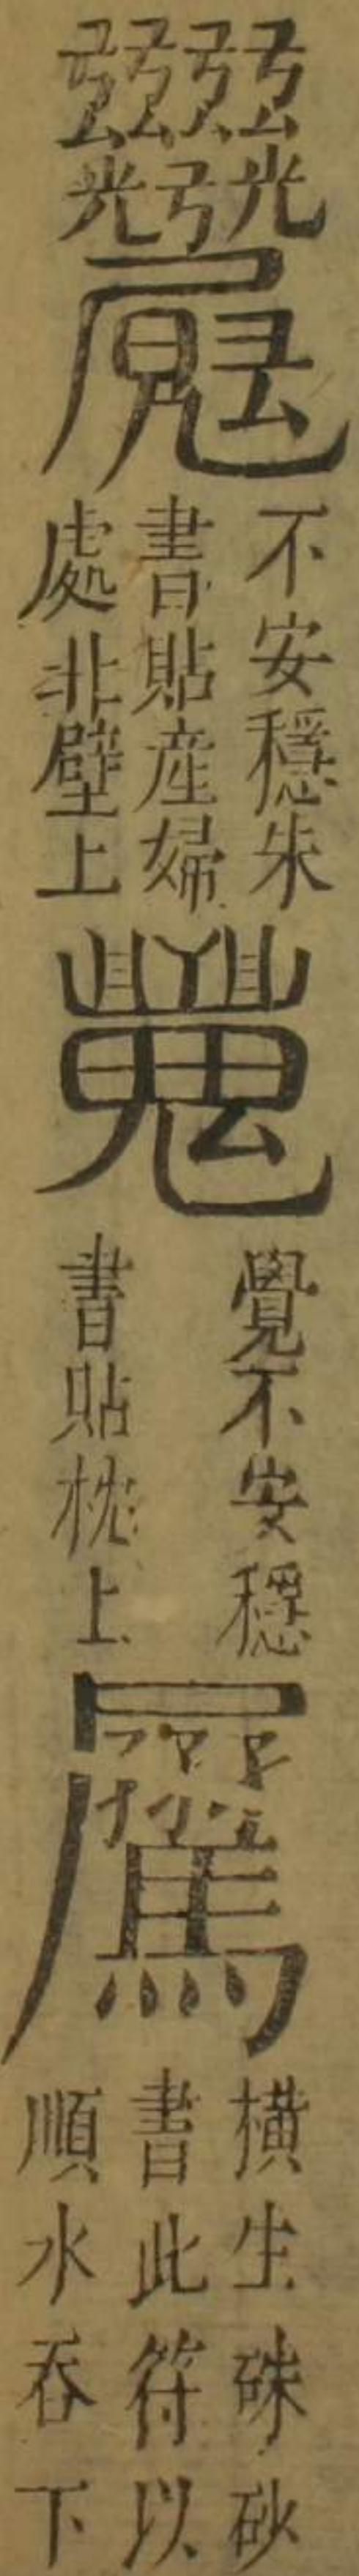 不安穩朱
書貼産婦
處北壁上
覺不安穩
書貼枕上
橫生硃砂
書此符以
順水吞下